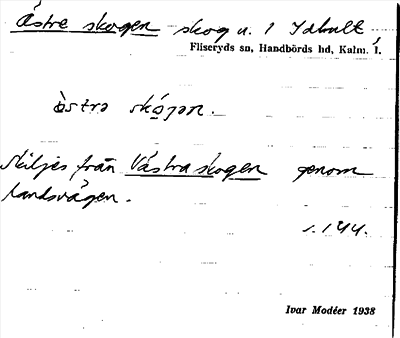 Östra skogen skog u. 1 Idhult
Fliseryds sn, Handbörds hd, Kalm. l.
östra skógan.
skiljes från Västra skogen genom
landsvägen.
s. 144.
Ivar Modéer 1938